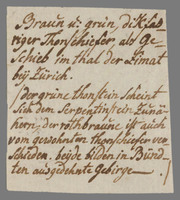 Braun u. grün, dikblät-
riger Thonschiefer, als Ge-
schieb im thal der Limat
beÿ Zürich.
(der grüne thonstein scheint
sich dem Serpentinstein zu nä-
hern, der rothbraune ist auch
vom gewohnten thonschiefer ver-
schieden. beyde bilden in Bünd-
ten ausgedehnte Gebirge.)